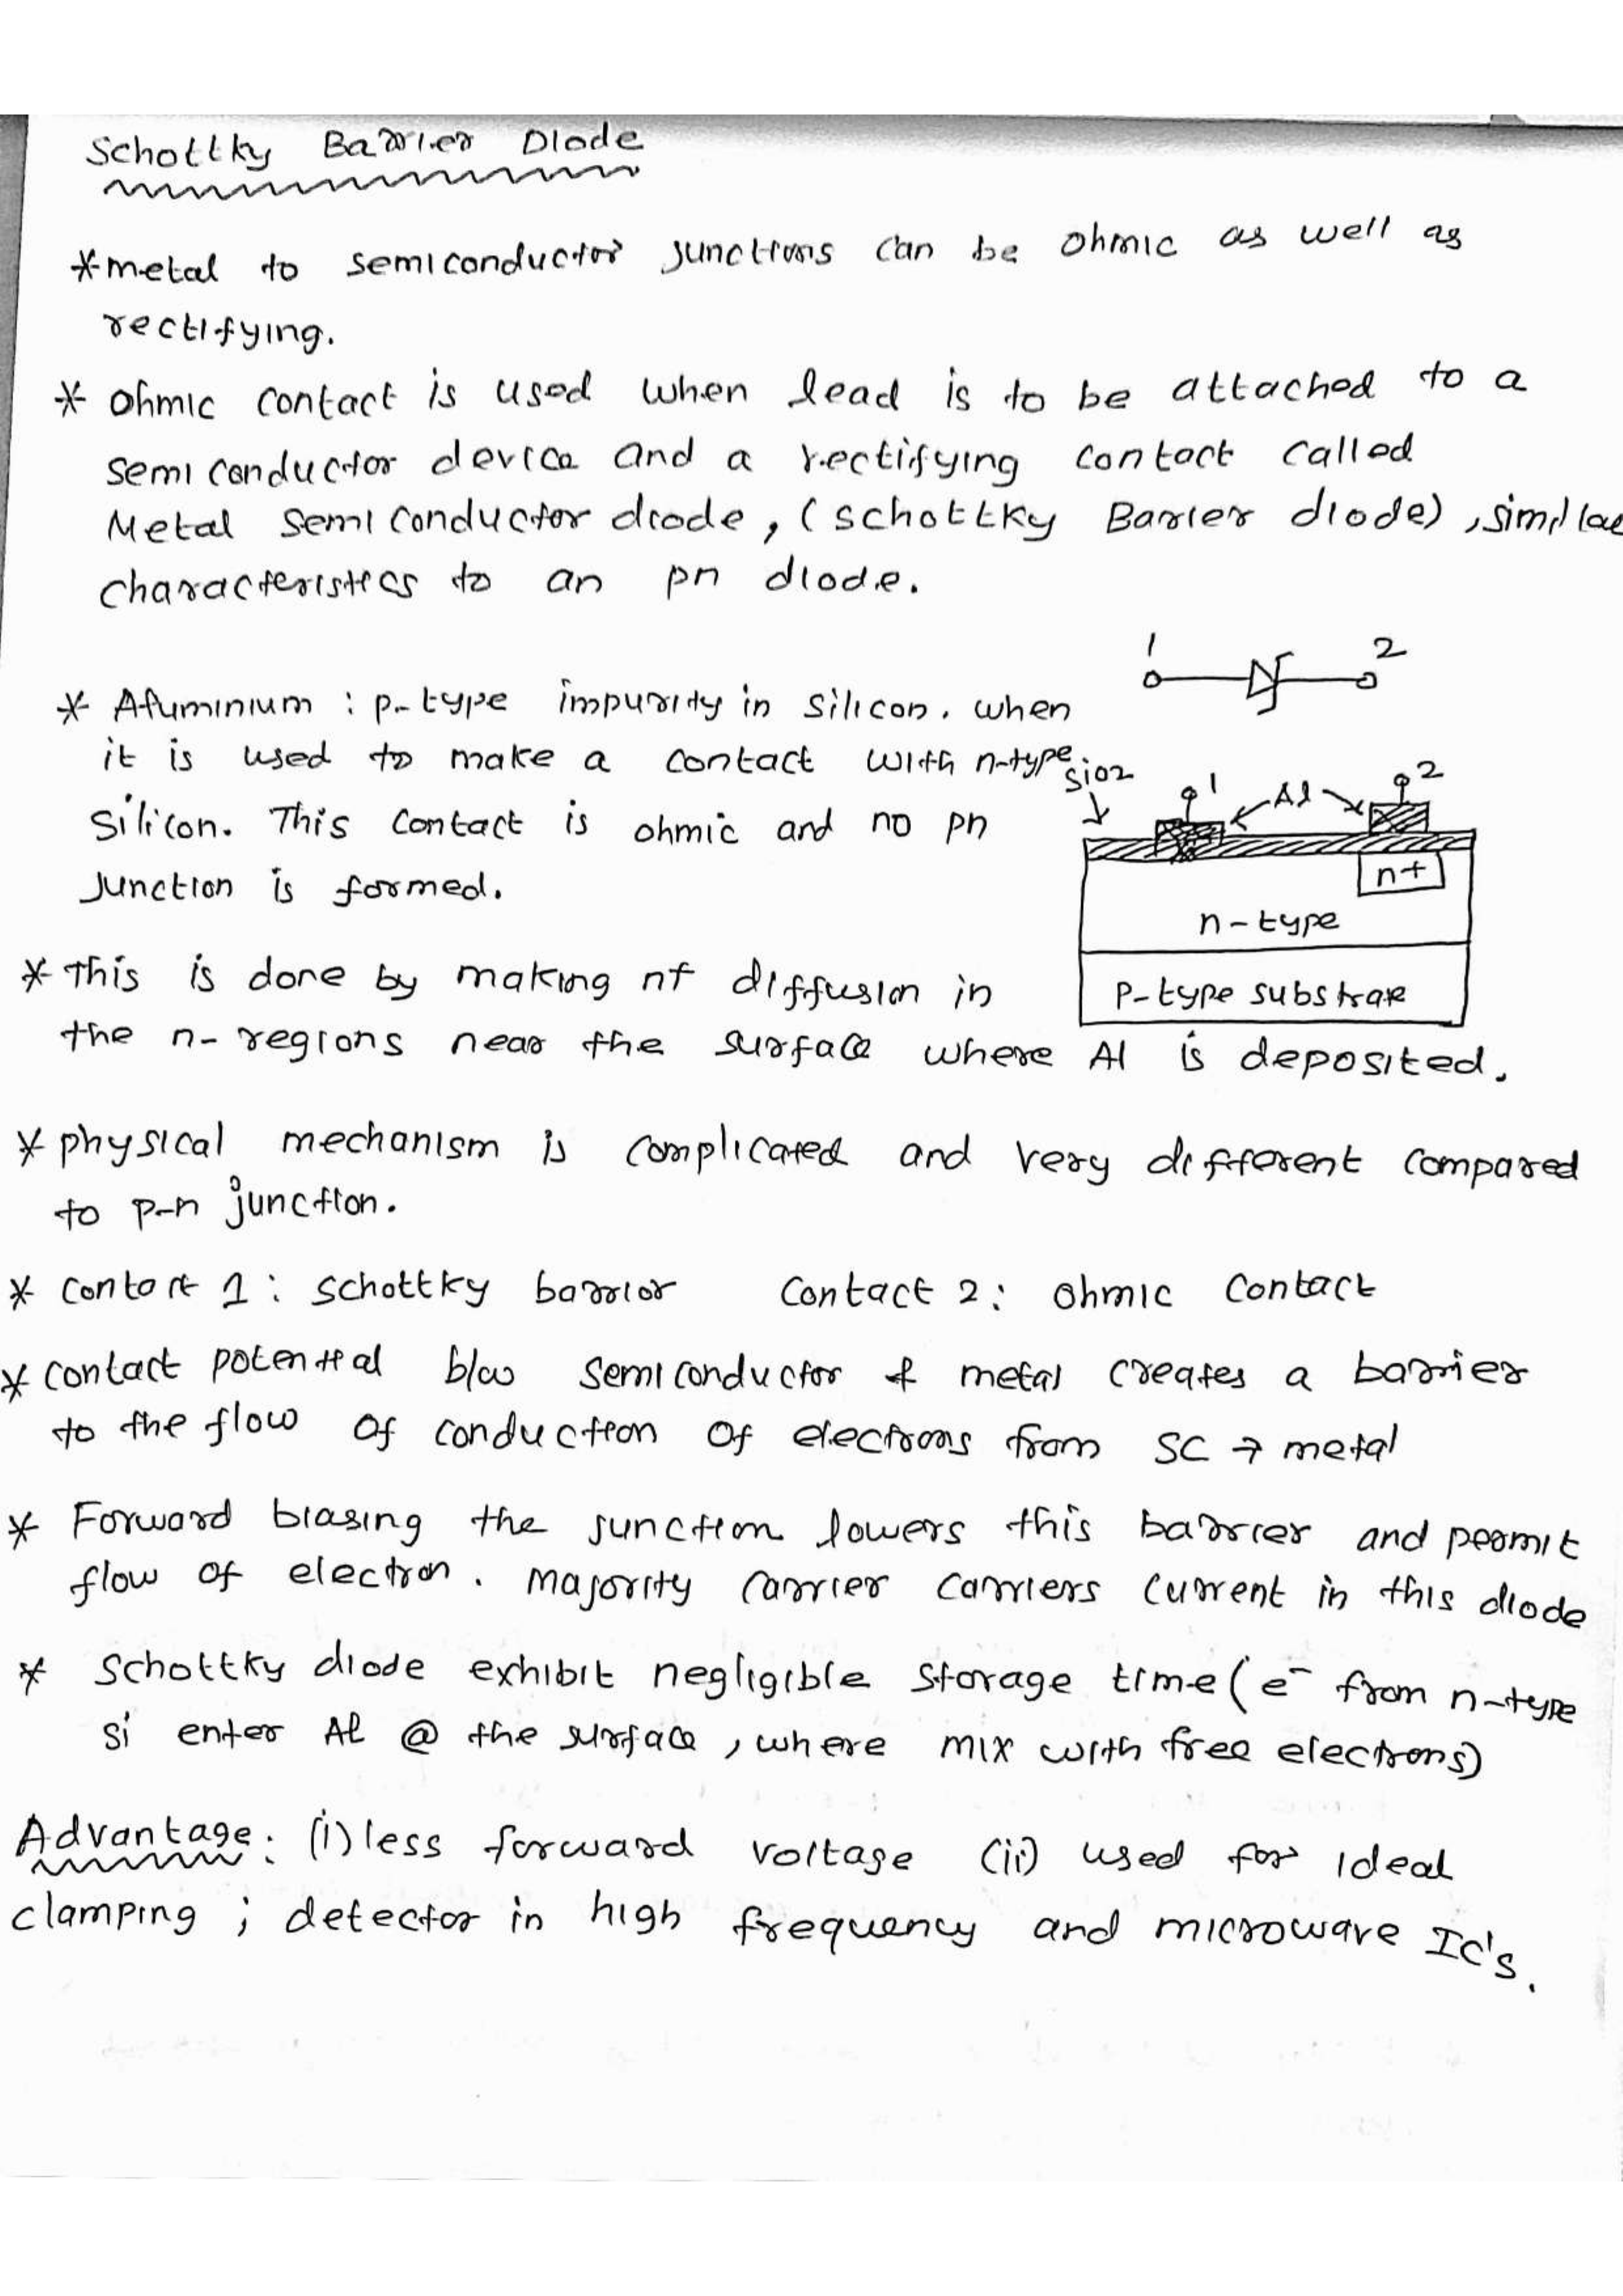 Schottky Barrier Diode
* metal to semiconductor junctions can be ohmic as well as
rectifying.
* ohmic contact is used when lead is to be attached to a
semiconductor device and a rectifying contact called
Metal semiconductor diode, (schottky Barrier diode), similar
characteristics to an pn diode.
1 2
* Aluminium : p-type impurity in silicon. when
it is used to make a contact with n-type
silicon. This contact is ohmic and no pn
junction is formed.
sio2 1 Al 2
n+
n-type
P-type substrate
* This is done by making n+ diffusion in
the n- regions near the surface where Al is deposited.
* physical mechanism is complicated and very different compared
to p-n junction.
* contact 1 : schottky barrier contact 2: ohmic contact
* contact potential b/w semiconductor & metal creates a barrier
to the flow of conduction of electrons from SC → metal
* Forward biasing the junction lowers this barrier and permit
flow of electron. majority carrier carriers current in this diode
* schottky diode exhibit negligible storage time (e⁻ from n-type
si enter Al @ the surface, where mix with free electrons)
Advantage: (i) less forward voltage (ii) used for ideal
clamping ; detector in high frequency and microwave IC's.